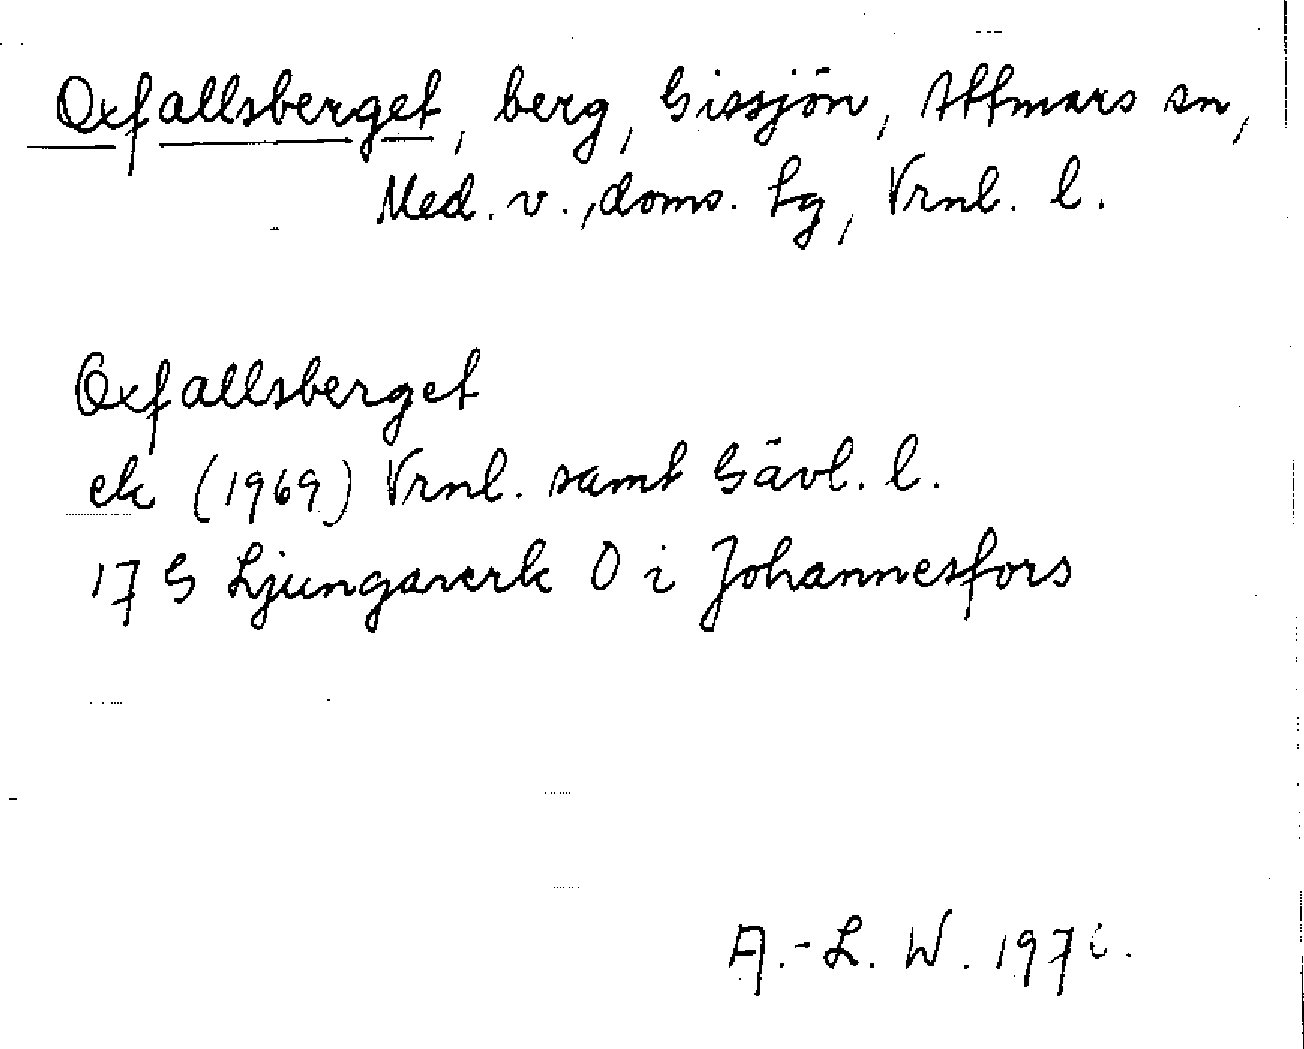 Oxfallsberget, berg, Gissjön, Attmars sn,
Med. v., doms. hg, Vrnl. l.
Oxfallsberget
ek (1969) Vrnl. samt Gävl. l.
17 G Ljungaverk O i Johannesfors
A.-L. W.